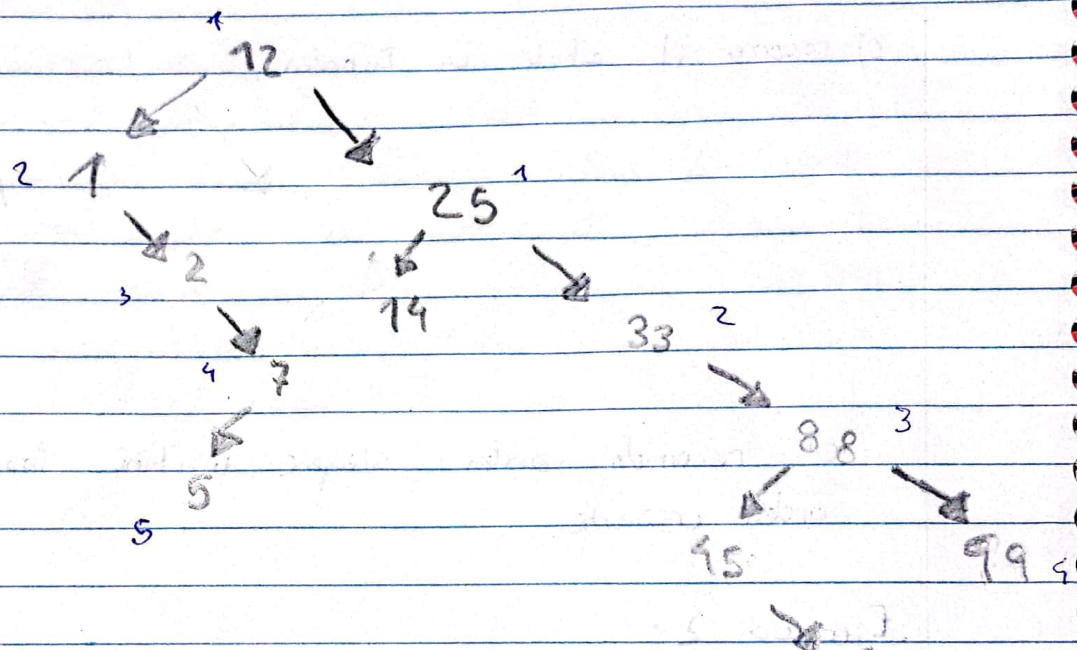 1
12
2 1
25 1
2
3
14
33 2
4 7
88 3
5
5
45
99 4